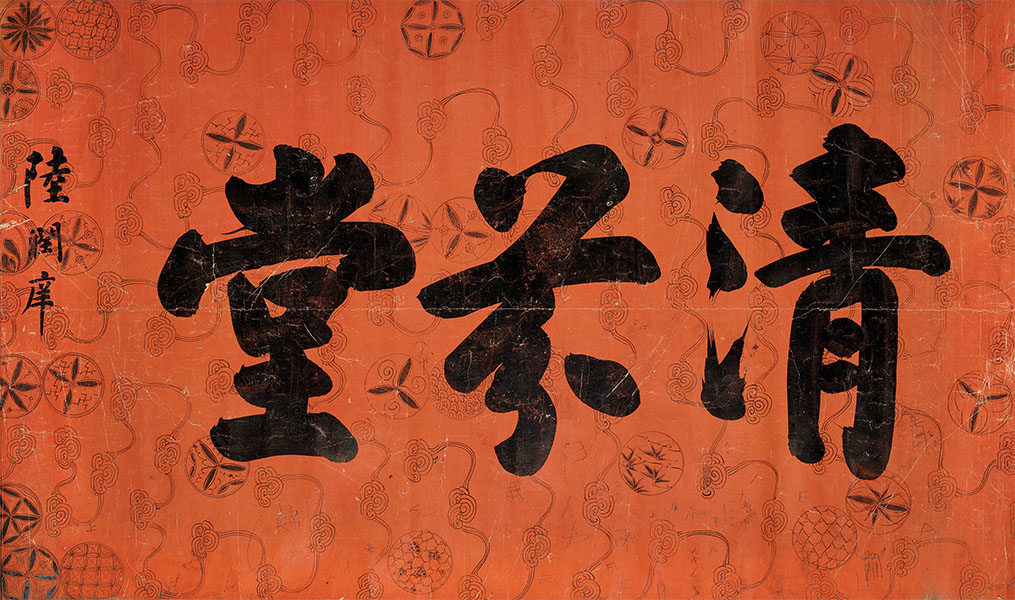 清芬堂
陸潤庠